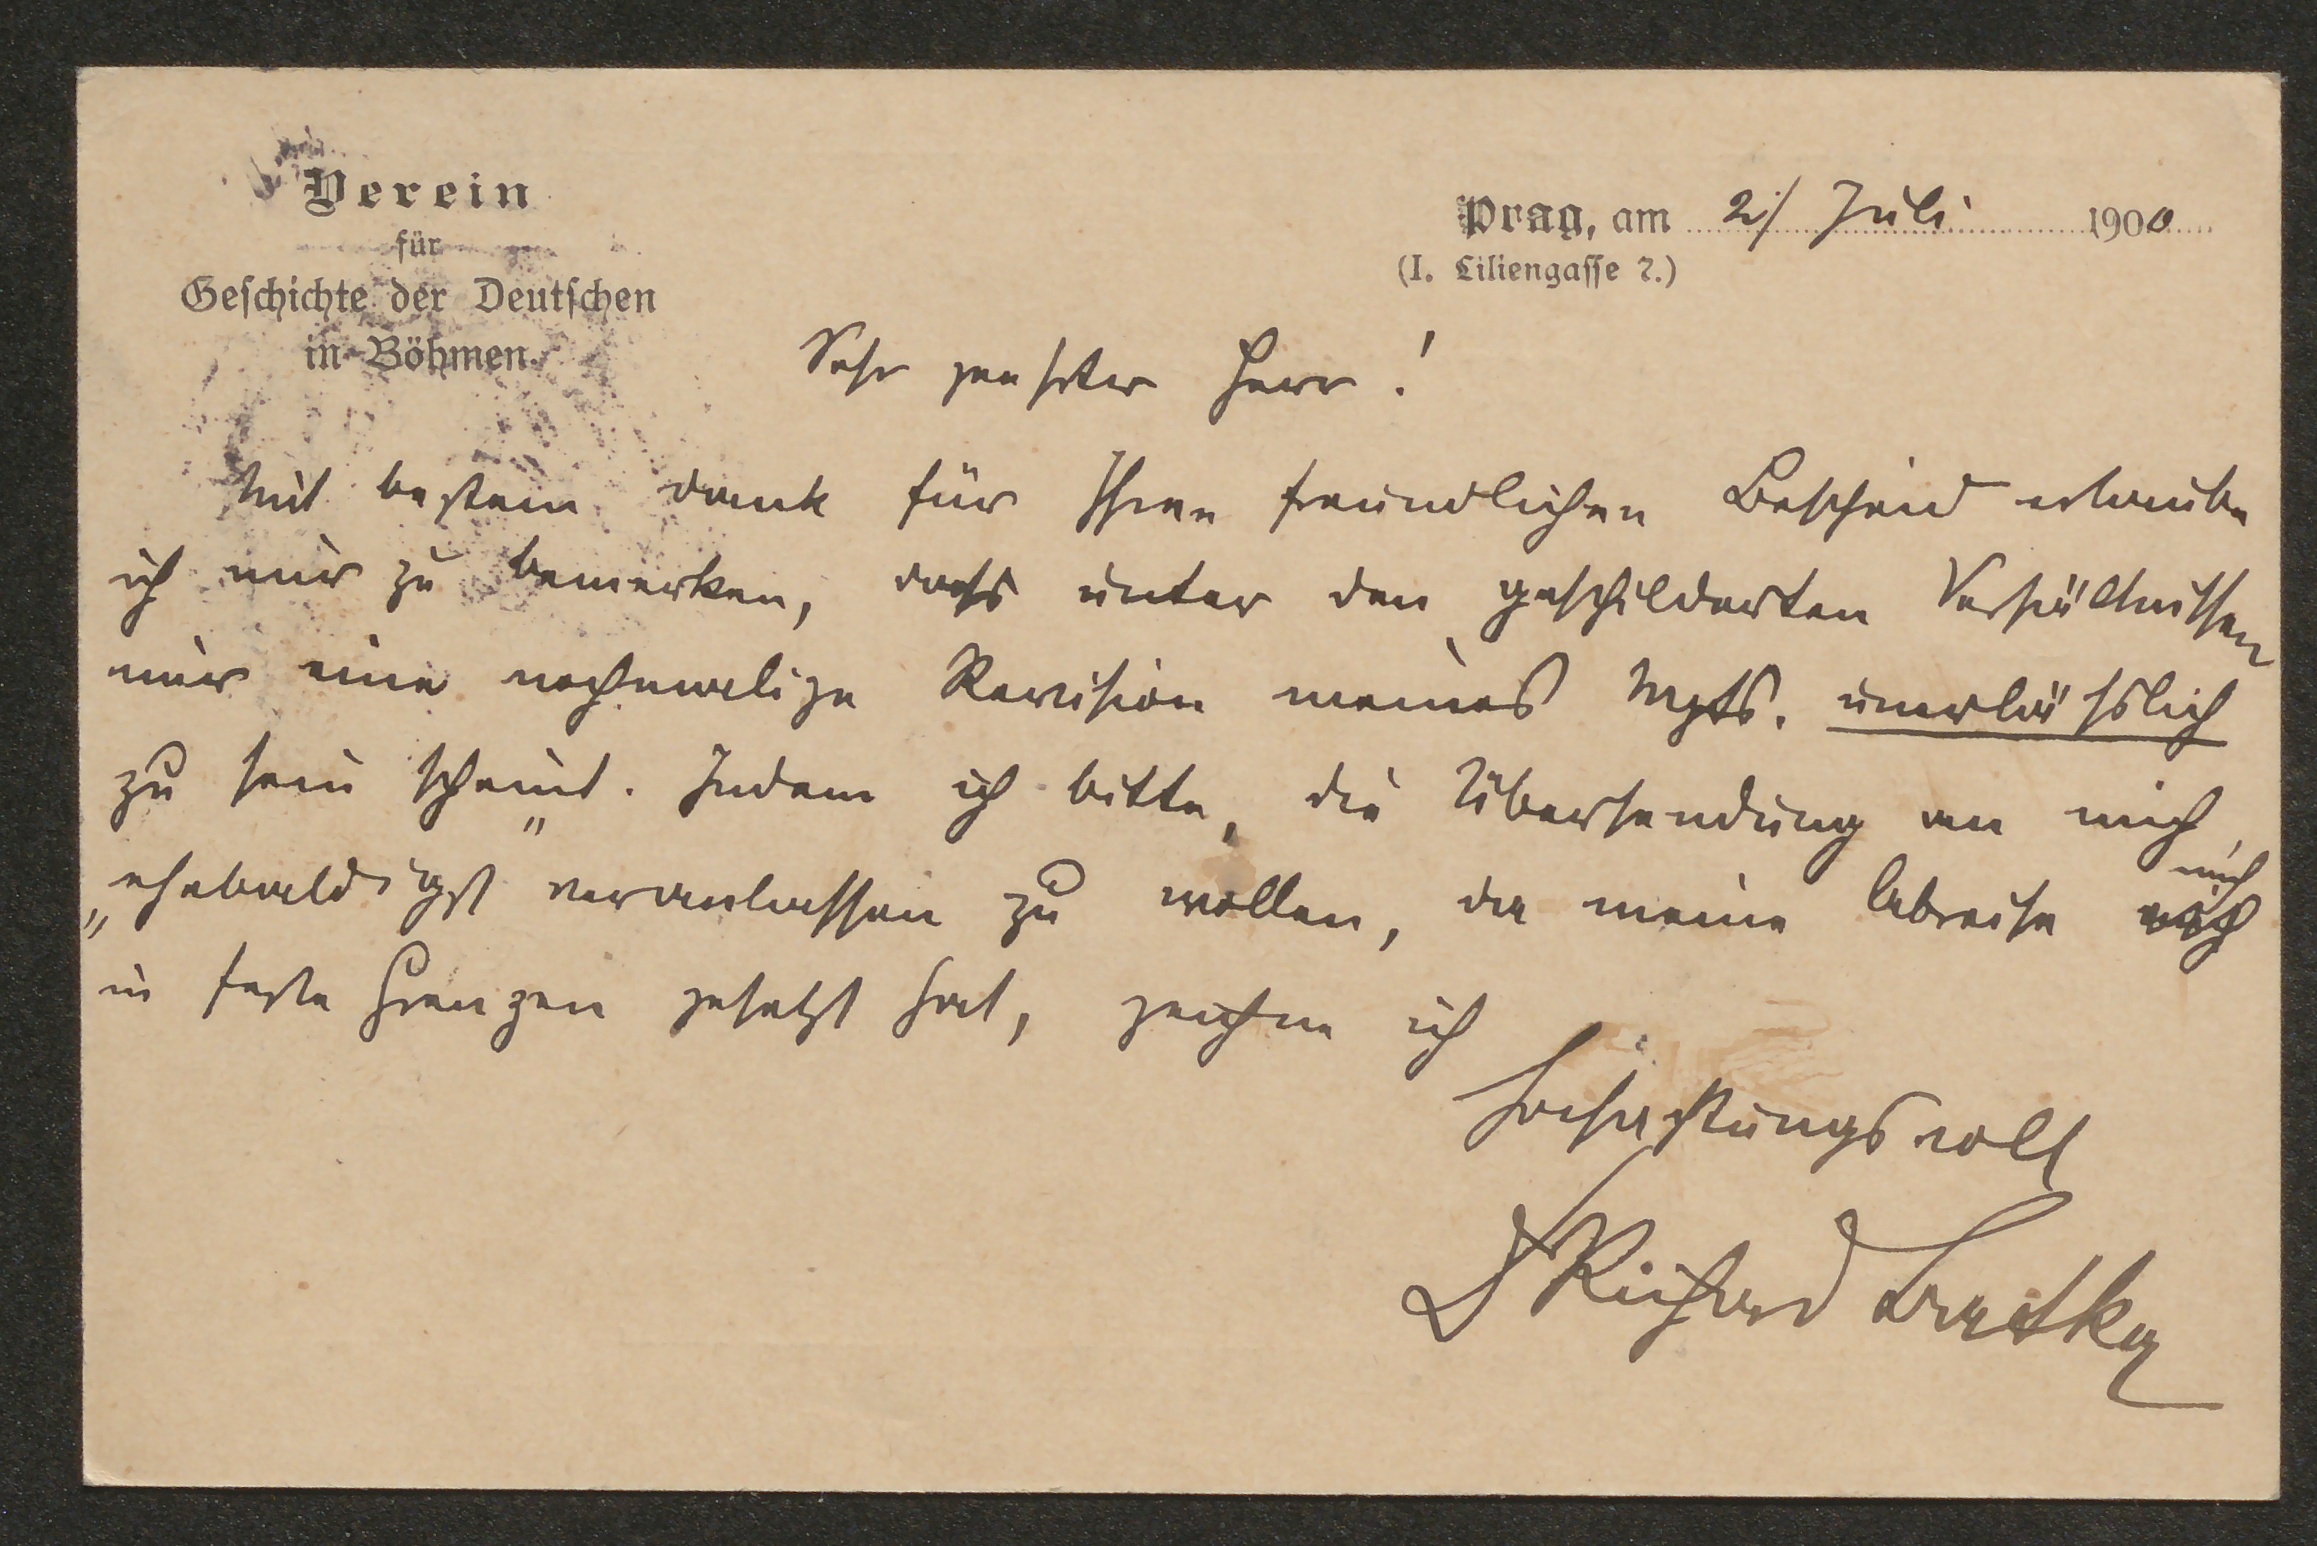 Verein
für
Geschichte der Deutschen
in Böhmen.
Prag, am 2/ Juli 1900
(I. Liliengasse 7.)
Sehr geehrter Herr!
Mit bestem Dank für Ihren freundlichen Bescheid erlaube
ich mir zu bemerken, dass unter den geschilderten Verhältnissen
mir eine nochmalige Revision meines Mpts. unerlässlich
zu sein scheint. Indem ich bitte, die Übersendung an mich
"ehebaldigst" veranlassen zu wollen, da meine Abreise mich
in feste Grenzen gesetzt hat, zeichne ich
hochachtungsvoll
Dr Richard Batka